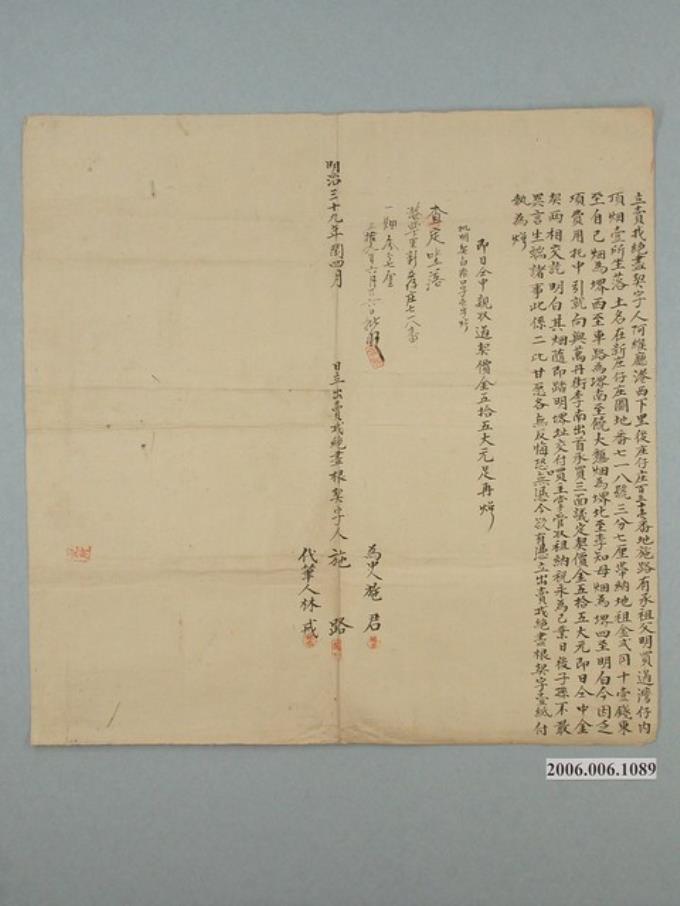 立賣找絕盡契字人阿緱廳港西下里後庄仔庄百三十七番地施路有承祖父明買過灣仔內
項畑壹所坐落土名在新庄仔庄圖地番七一八號三分七厘帶納地租金弍円十壹錢東
至自己畑為堺西至車路為堺南至饒大麵畑為堺北至李知母畑為堺四至明白今因乏
項費用托中引就向與萬丹街李南出首承買三面議定契價金五拾五大元即日仝中金
契兩相交訖明白其畑隨即踏明堺址交付買主掌管收租納稅永為己業日後子孫不敢
異言生端諸事此係二比甘愿各無反悔恐口無憑今欲有憑立出賣找絕盡根契字壹紙付
執為炤
即日仝中親收過契價金五拾五大元足再炤
批明
查定坐落
新庄仔庄七一八番
一畑
三拾九年六月
明治三十九年閏四月 日立出賣找絕盡根契字人施 路
為中人施 君
代筆人林 戒
2006.006.1089